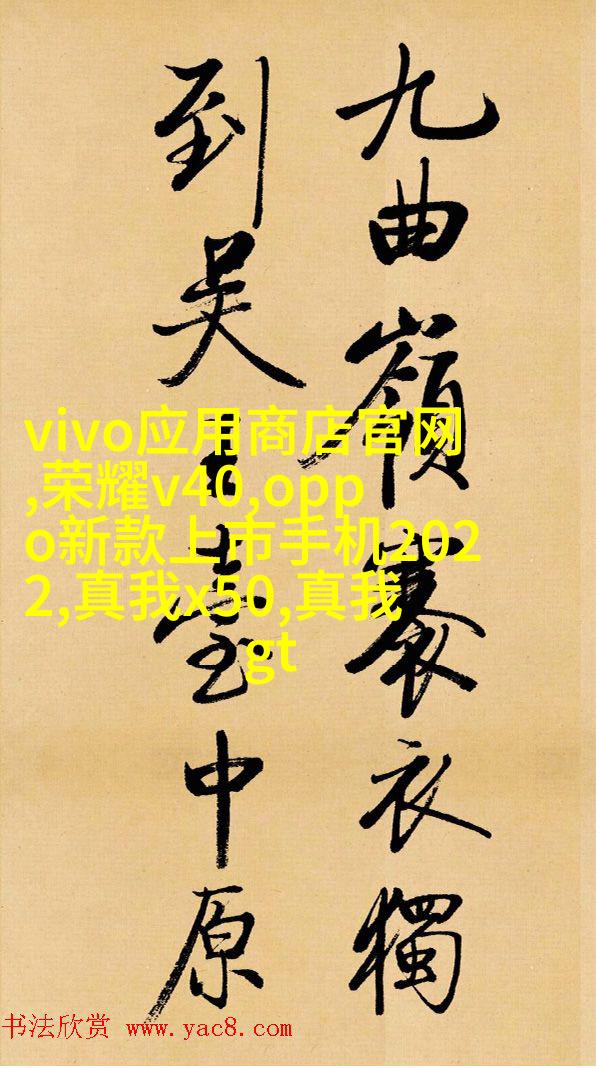 九曲嶺褰衣獨
到吴臺中原
vivo应用商店官网
,荣耀v40,opp
o新款上市手机202
2,真我x50,真我
gt
书法欣赏 www.yac8.com